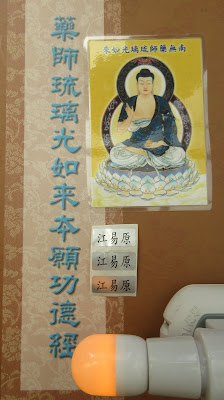 藥師琉璃光如來本願功德經
南無藥師琉璃光如來
江易原
江易原
江易原